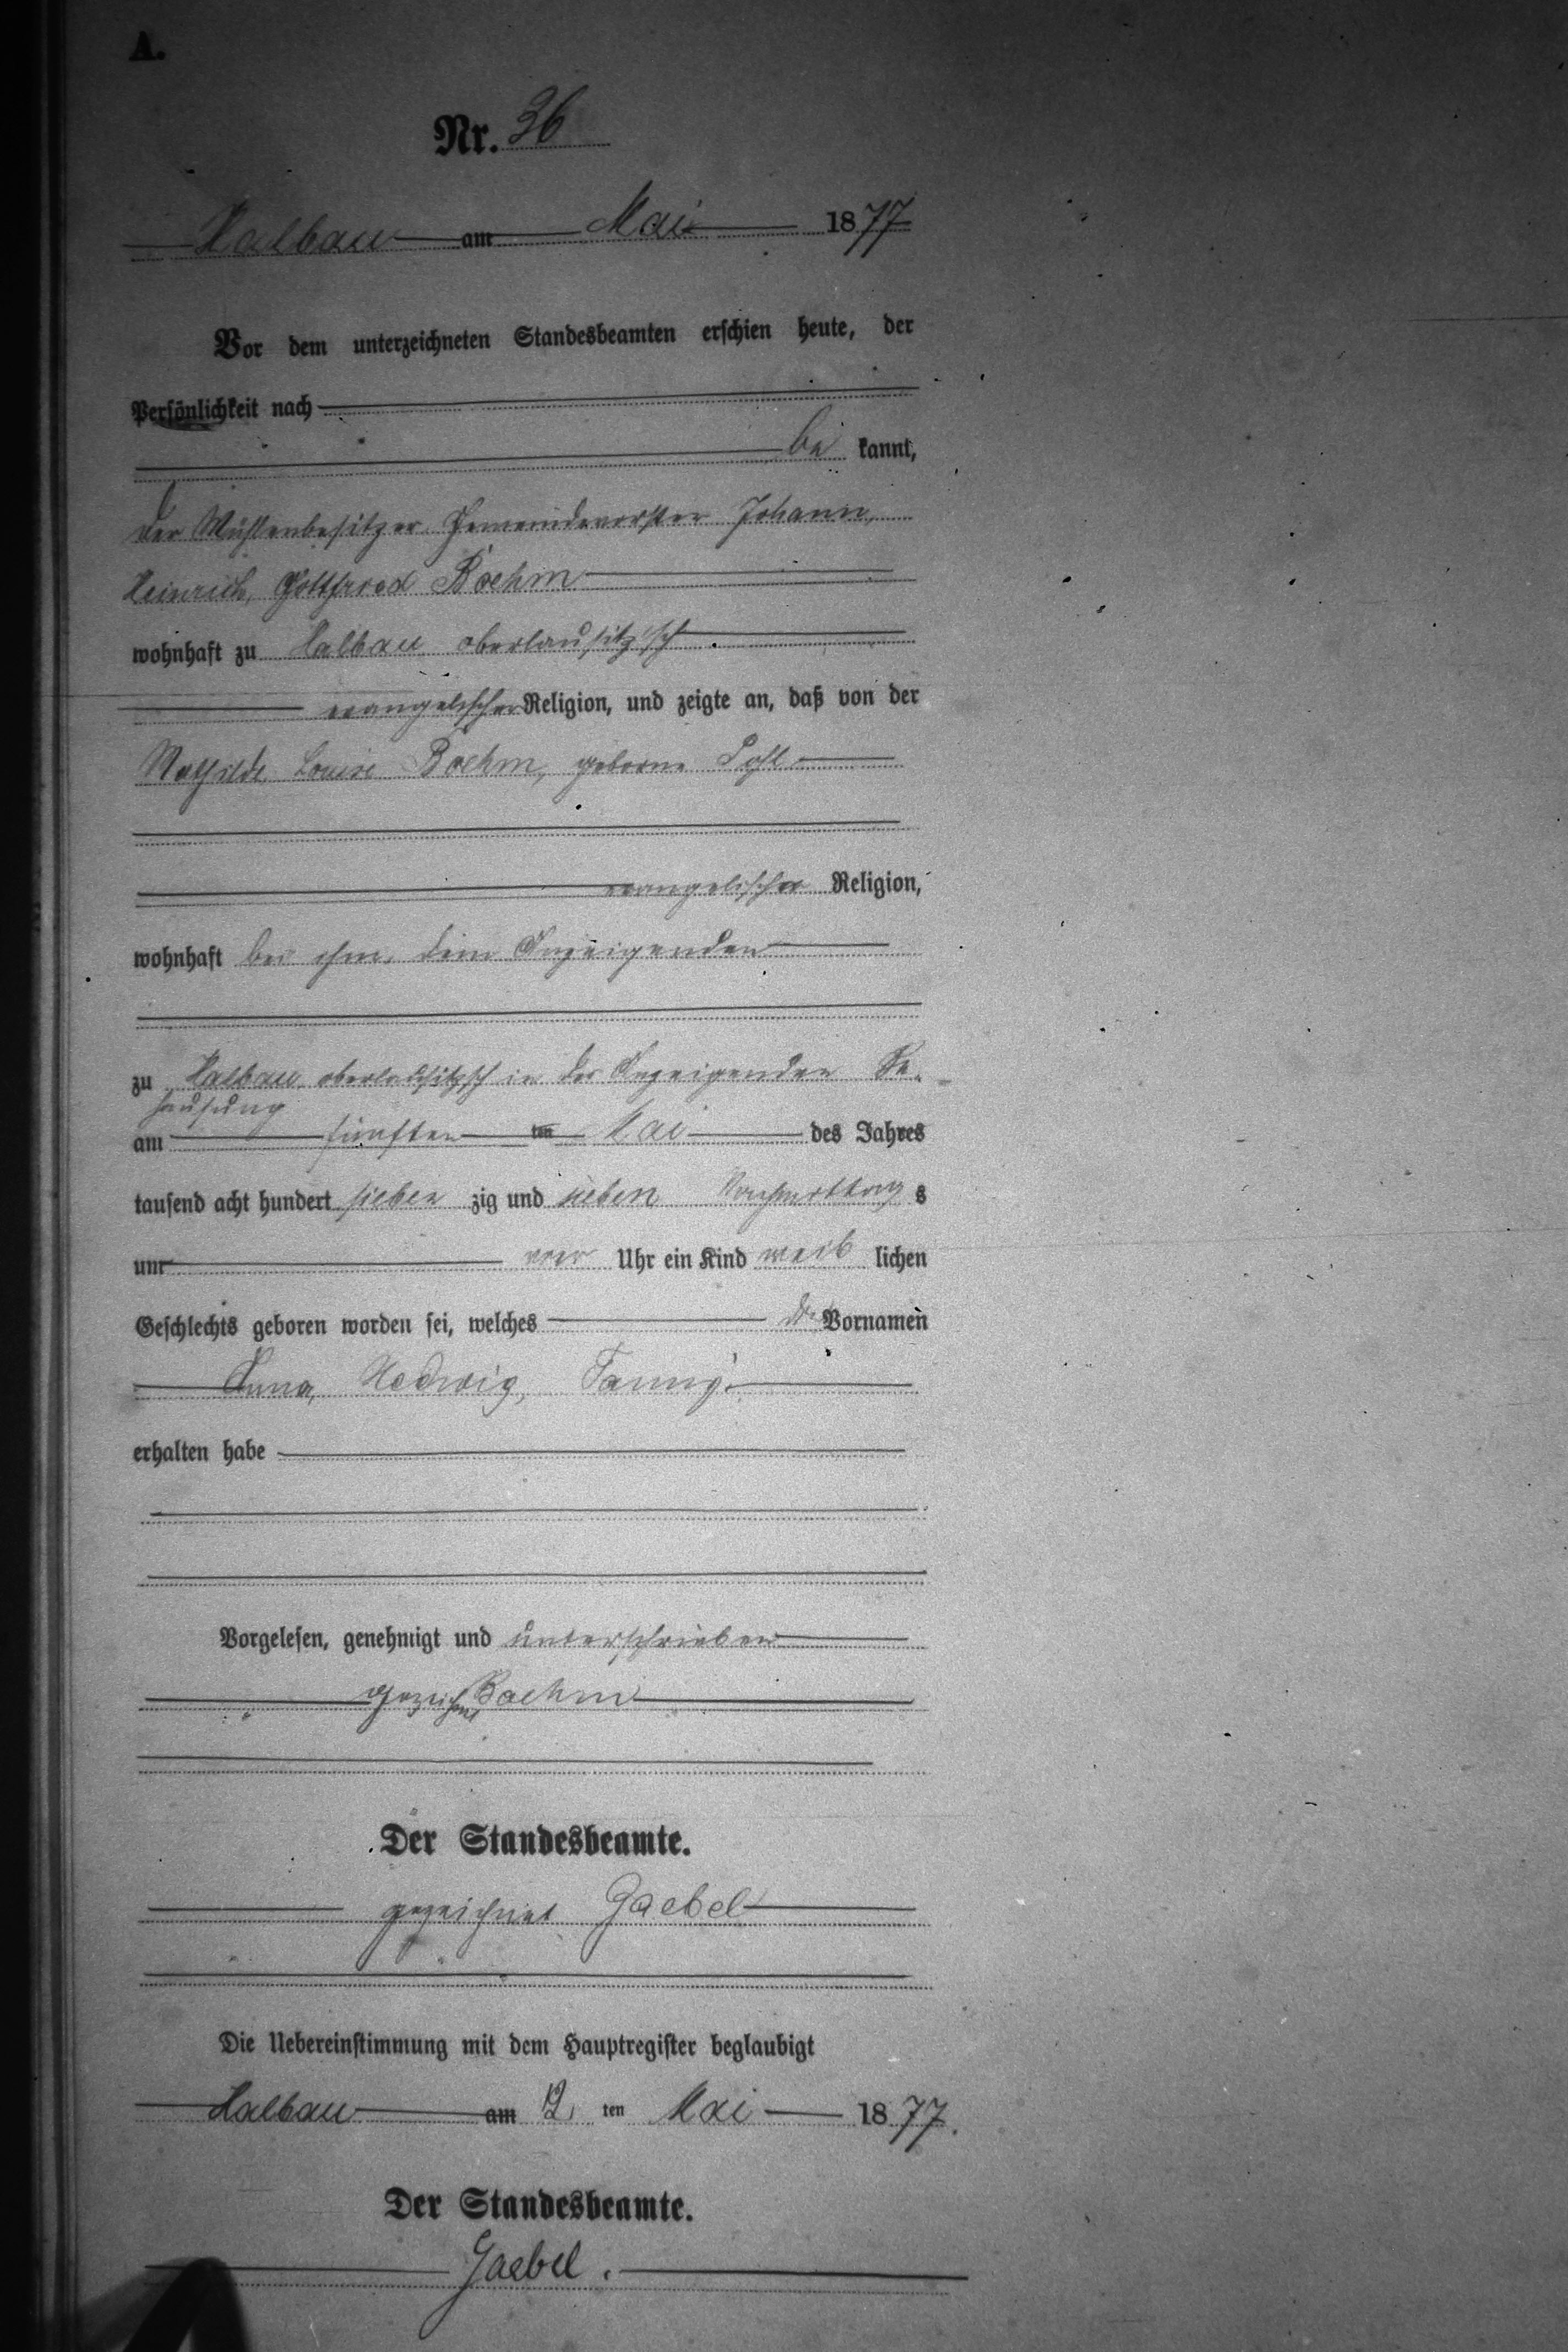 A.
Nr. 36
Halbau am Mai 1877
Vor dem unterzeichneten Standesbeamten erschien heute, der
Persönlichkeit nach
be kannt,
der Mühlenbesitzer Gemeindevorsteher Johann,
Heinrich, Gottfried Boehm
wohnhaft zu Halbau oberlausitzisch
evangelischer Religion, und zeigte an, daß von der
Mathilde Louise Boehm, geborne Pohl
evangelischer Religion,
wohnhaft bei ihm, dem Anzeigenden
zu Halbau oberlausitzisch in des Anzeigenden Be-
hausung
am fünften ten Mai des Jahres
tausend acht hundert sieben zig und sieben Nachmittag s
um vier Uhr ein Kind weib lichen
Geschlechts geboren worden sei, welches die Vornamen
Anna, Hedwig, Fanny
erhalten habe
Vorgelesen, genehmigt und unterschrieben
gezeichnet Boehm
Der Standesbeamte.
gezeichnet Gaebel
Die Uebereinstimmung mit dem Hauptregister beglaubigt
Halbau am 12 ten Mai 1877.
Der Standesbeamte.
Gaebel.